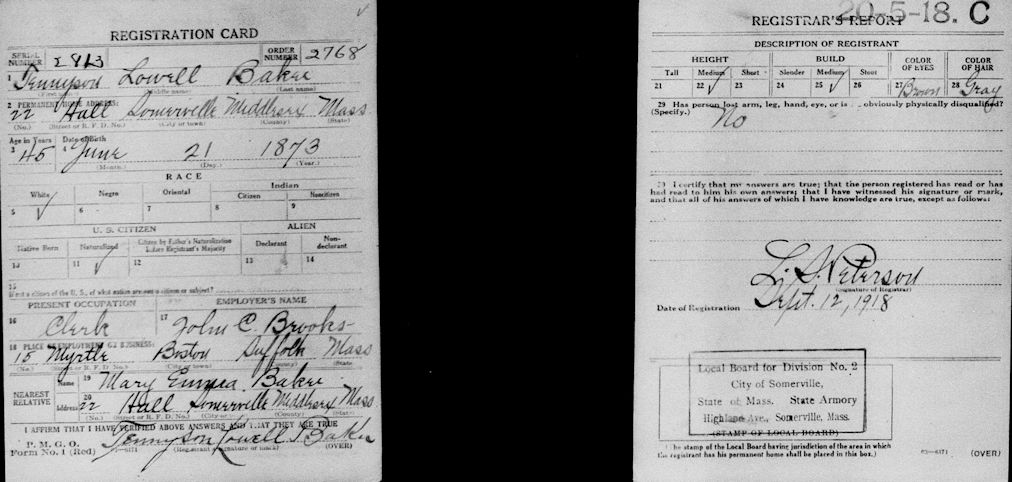 REGISTRATION CARD
SERIAL NUMBER 2813 ORDER NUMBER 2768
1 Tennyson Lowell Baker
(First name) (Middle name) (Last name)
2 PERMANENT HOME ADDRESS:
22 Hall Somerville Middlesex Mass
(No.) (Street or R. F. D. No.) (City or town) (County) (State)
Age in Years Date of Birth
3 45 4 June 21 1873
(Month.) (Day.) (Year.)
RACE
White Negro Oriental Indian
Citizen Noncitizen
5 ✓ 6 7 8 9
U. S. CITIZEN ALIEN
Native Born Naturalized Citizen by Father's Naturalization Before Registrant's Majority Declarant Non-declarant
10 11 ✓ 12 13 14
15
If not a citizen of the U. S., of what nation are you a citizen or subject?
PRESENT OCCUPATION EMPLOYER'S NAME
16 Clerk 17 John C. Brooks
18 PLACE OF EMPLOYMENT OR BUSINESS:
15 Myrtle Boston Suffolk Mass
(No.) (Street or R. F. D. No.) (City or town) (County) (State)
NEAREST RELATIVE Name 19 Mary Emma Baker
Address 20 22 Hall Somerville Middlesex Mass
(No.) (Street or R. F. D. No.) (City or town) (County) (State)
I AFFIRM THAT I HAVE VERIFIED ABOVE ANSWERS AND THAT THEY ARE TRUE
P. M. G. O.
Form No. 1 (Red) Tennyson Lowell Baker
(Registrant's signature or mark) (OVER)
20-5-18. C
REGISTRAR'S REPORT
DESCRIPTION OF REGISTRANT
HEIGHT BUILD COLOR OF EYES COLOR OF HAIR
Tall Medium Short Slender Medium Stout
21 22 ✓ 23 24 25 ✓ 26 27 Brown 28 Gray
29 Has person lost arm, leg, hand, eye, or is obviously physically disqualified?
(Specify.) No
30 I certify that my answers are true; that the person registered has read or has
had read to him his own answers; that I have witnessed his signature or mark,
and that all of his answers of which I have knowledge are true, except as follows:
Peterson
(Signature of Registrar)
Date of Registration Sept. 12, 1918
Local Board for Division No. 2
City of Somerville,
State of Mass. State Armory
Highland Ave., Somerville, Mass.
(STAMP OF LOCAL BOARD)
(The stamp of the Local Board having jurisdiction of the area in which
the registrant has his permanent home shall be placed in this box.)
(OVER)